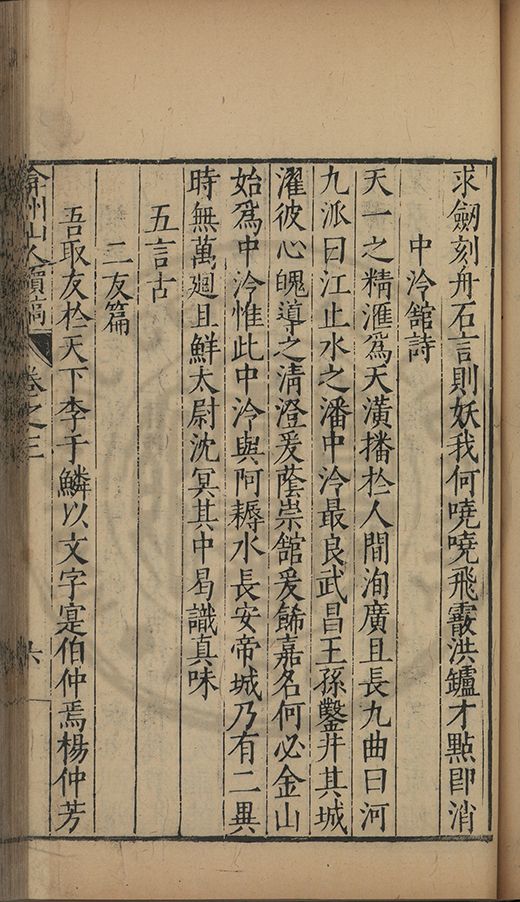 求劒刻舟石言則妖我何嘵嘵飛霰洪鑪才點卽消
中泠館詩
天一之精滙爲天潢播於人間洵廣且長九曲曰河
九派曰江止水之潘中泠最良武昌王孫鑿井其城
濯彼心魄導之清澄爰蔭崇館爰餙嘉名何必金山
始爲中泠惟此中泠與阿耨水長安帝城乃有二異
時無萬廻且鮮太尉沈冥其中曷識真味
五言古
二友篇
吾取友於天下李于鱗以文字寔伯仲焉楊仲芳
弇州山人續稿 卷之三 六